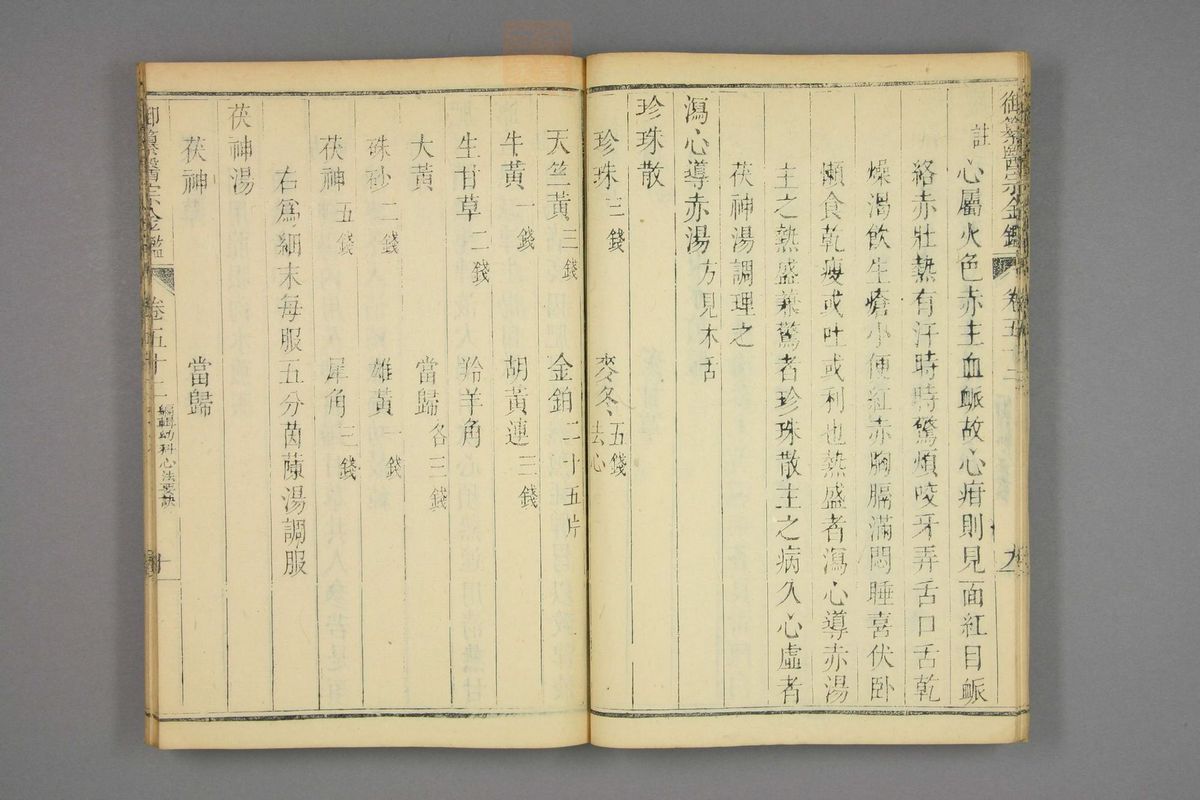 御纂醫宗金鑑 卷五十二 九
註 心屬火色赤主血脈故心疳則見面紅目脈
絡赤壯熱有汗時時驚煩咬牙弄舌口舌乾
燥渴飲生瘡小便紅赤胸膈滿悶睡喜伏臥
懶食乾瘦或吐或利也熱盛者瀉心導赤湯
主之熱盛兼驚者珍珠散主之病久心虛者
茯神湯調理之
瀉心導赤湯 方見木舌
珍珠散
珍珠三錢 麥冬去心五錢
天竺黃三錢 金鉑二十五片
牛黃一錢 胡黃連三錢
生甘草二錢 羚羊角
大黃 當歸各三錢
硃砂二錢 雄黃一錢
茯神五錢 犀角三錢
右爲細末每服五分茵蔯湯調服
茯神湯
茯神 當歸
御纂醫宗金鑑 卷五十二 編輯幼科心法要訣 十